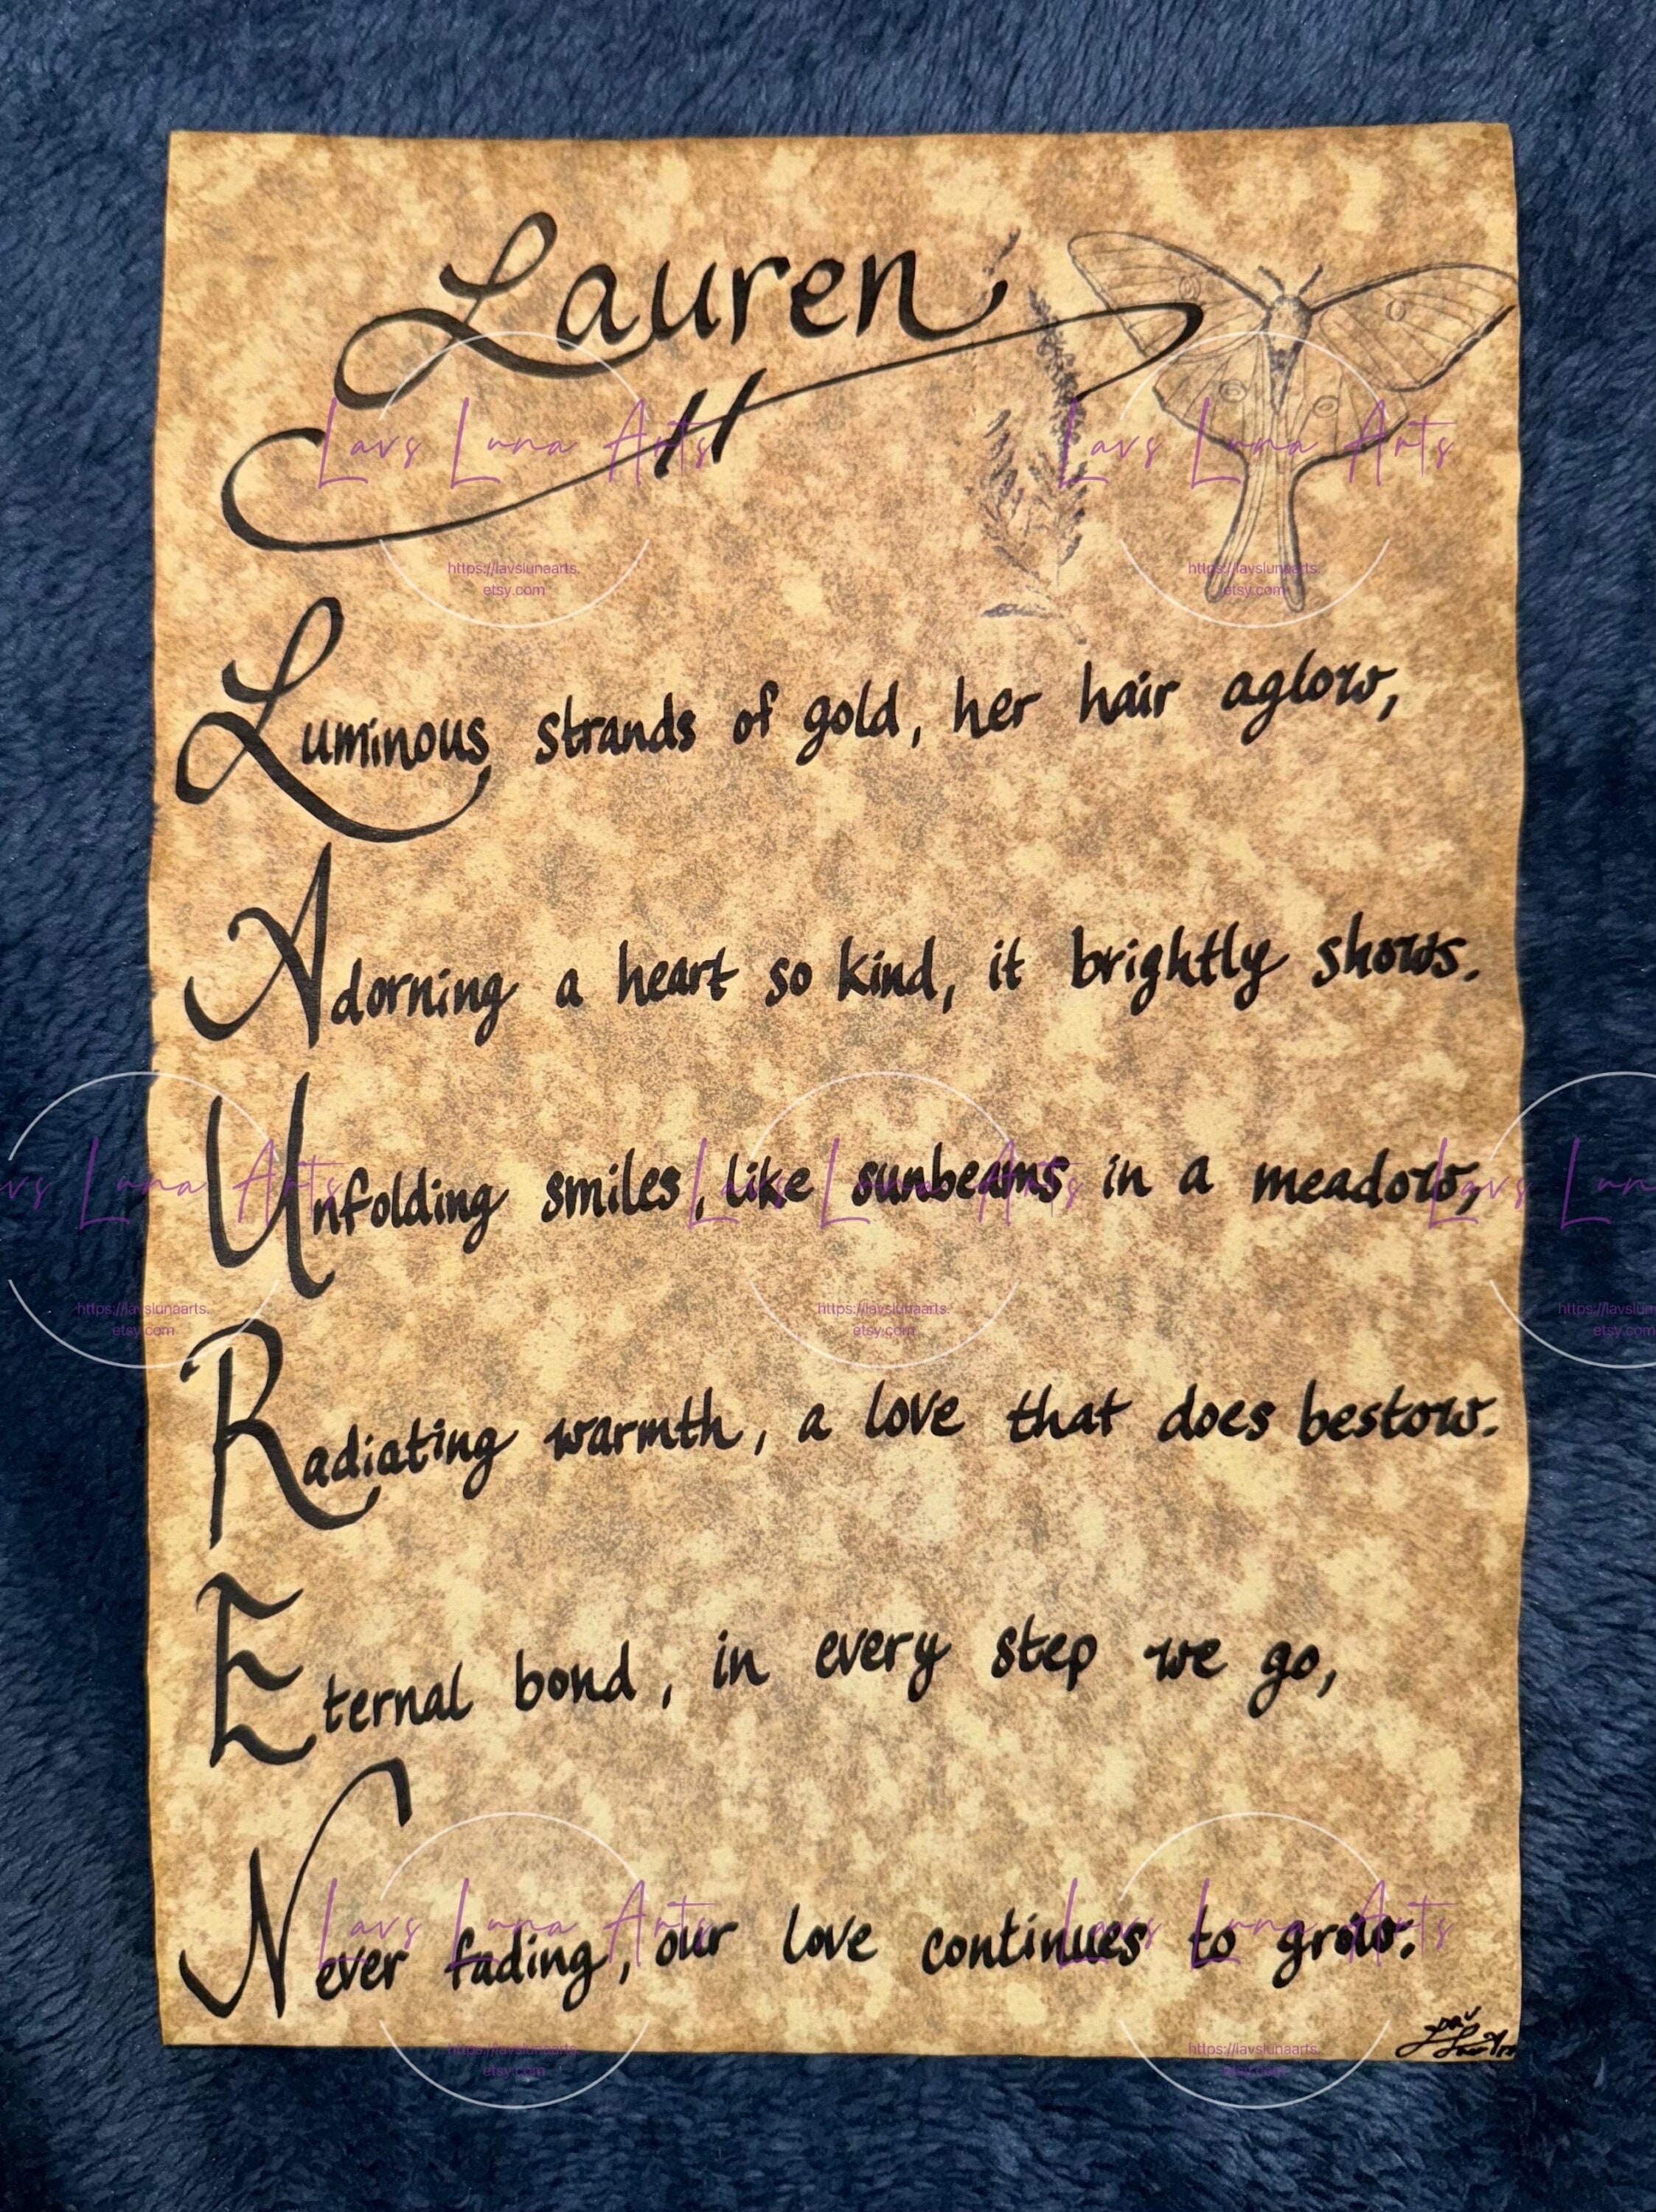 Lauren
Luminous strands of gold, her hair aglow,
Adorning a heart so kind, it brightly shows.
Unfolding smiles, like sunbeams in a meadow,
Radiating warmth, a love that does bestow.
Eternal bond, in every step we go,
Never fading, our love continues to grow.
Lavs Luna Arts
https://lavslunaarts.
etsy.com